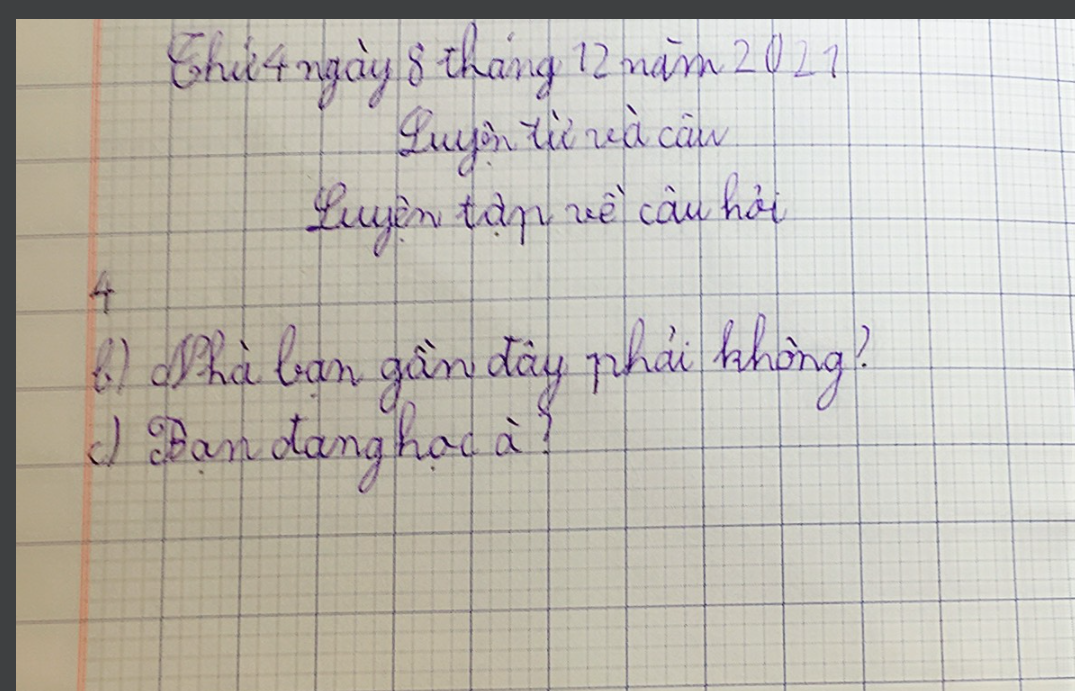 Thứ 4 ngày 8 tháng 12 năm 2021
Luyện từ và câu
Luyện tập về câu hỏi
4
b) Nhà bạn gần đây phải không?
c) Bạn đang học à?